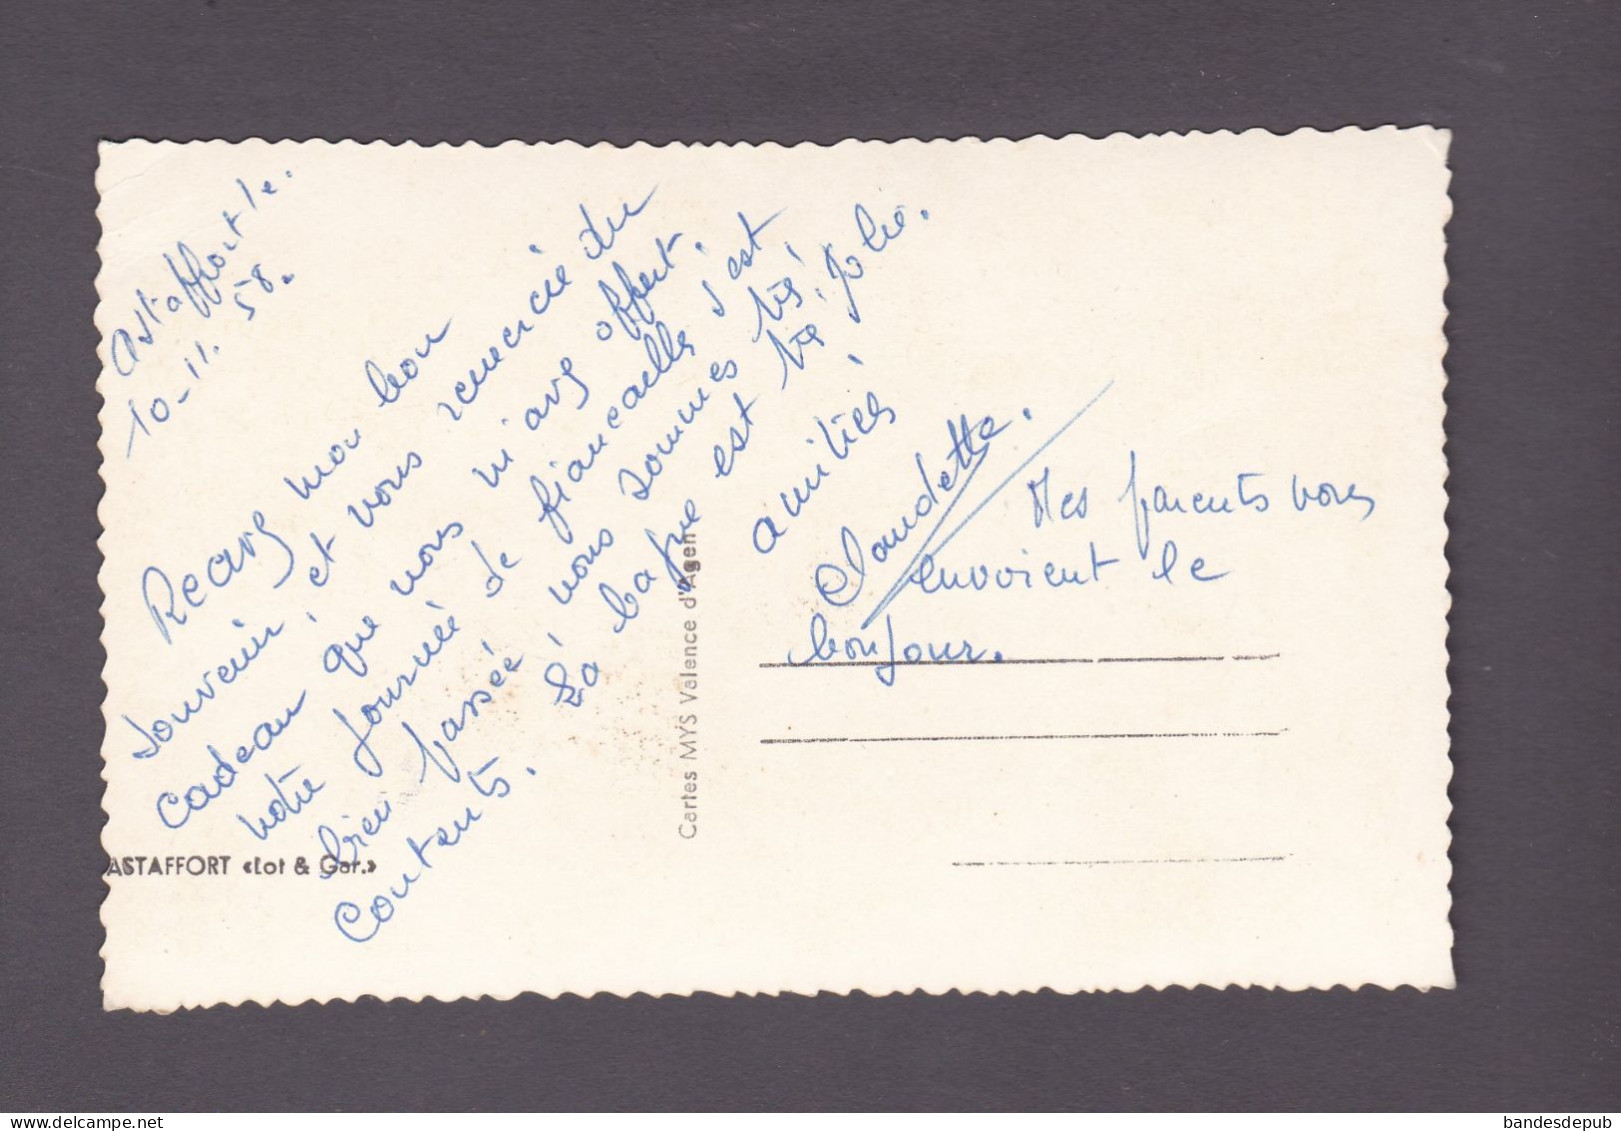 Astaffort le.
10-11. 58.
Recevez mon bon
souvenir, et vous remercie du
cadeau que vous m'avez offert.
notre journée de fiancailles s'est
bien passée, nous sommes très
contents. La bague est très jolie.
amitiés
Claudette.
Mes parents vous
envoient le
bonjour.
Cartes MYS Valence d'Agen
ASTAFFORT «Lot & Gar.»
bandesdepub